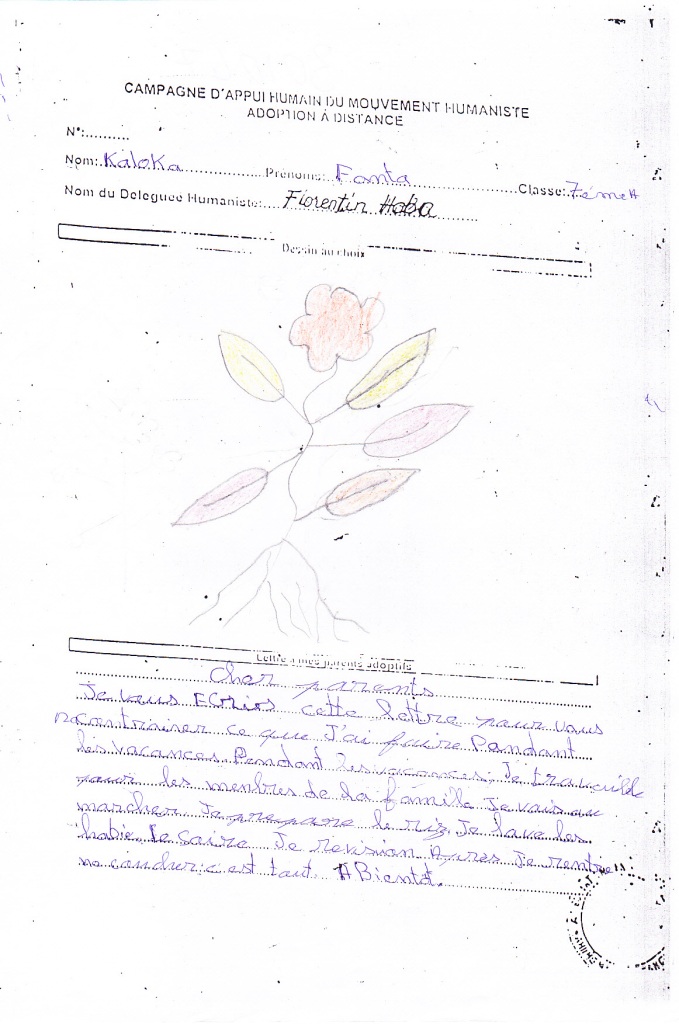 CAMPAGNE D'APPUI HUMAIN DU MOUVEMENT HUMANISTE
ADOPTION À DISTANCE
N°:..........
Nom: Kaloka Prénoms: Fanta Classe: 7émeA
Nom du Deleguee Humaniste: Florentin Haba
Dessin au choix
Lettre à mes parents adoptifs
Cher parents
Je vous Ecrirs cette lettre pour vous
ce que J'ai faire Pandant
les vacances. Pendant les vacances, Je travaille
pour les menbres de la famille Je vais au
marcher Je prepare le riz, Je lave les
habie, le Saire Je revision Apres Je rentre
me coucher c'est tout. A Bientôt.